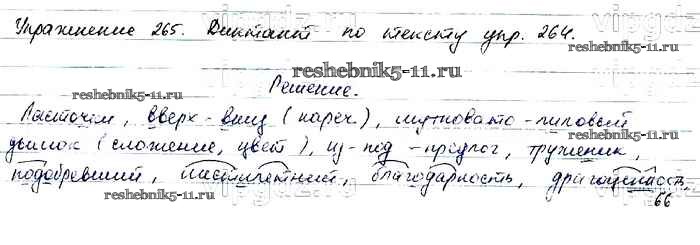 Упражнение 265. Диктант по тексту упр. 264.
reshebnik5-11.ru
Решение.
reshebnik5-11.ru
Ласточки, вверх-вниз (нареч.), мутновато-лиловый
дымок (сложение, цвет), из-под -предлог, труженик,
подобревший, шестилетний, благодарность, драгоценность.
reshebnik5-11.ru
66